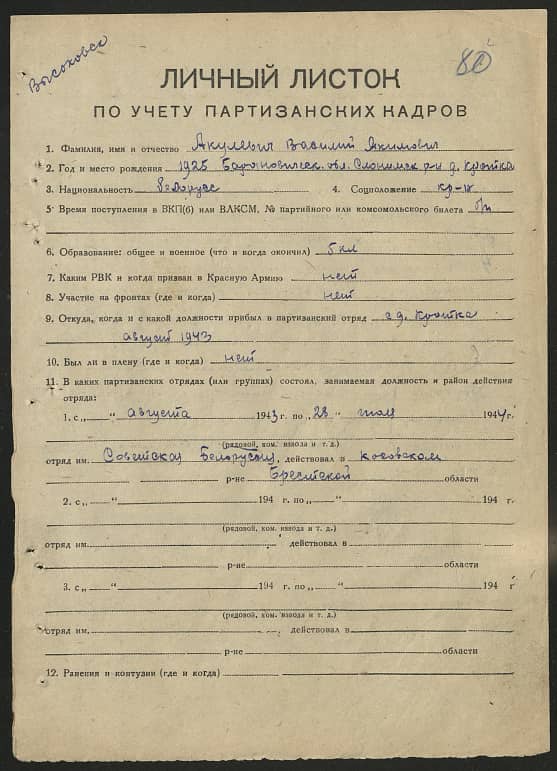 Высоковск
80
ЛИЧНЫЙ ЛИСТОК
ПО УЧЕТУ ПАРТИЗАНСКИХ КАДРОВ
1. Фамилия, имя и отчество Акулевич Василий Якимович
2. Год и место рождения 1925 Барановическ. обл. Слонимск р-н д. Кротка
3. Национальность белорусс 4. Соцположение кр-н
5. Время поступления в ВКП(б) или ВЛКСМ, № партийного или комсомольского билета б/п
6. Образование: общее и военное (что и когда окончил) 5 кл
7. Каким РВК и когда призван в Красную Армию нет
8. Участие на фронтах (где и когда) нет
9. Откуда, когда и с какой должности прибыл в партизанский отряд с д. Кротка
август 1943
10. Был ли в плену (где и когда) нет
11. В каких партизанских отрядах (или группах) состоял, занимаемая должность и район действия
отряда:
1. с „ “ августа 1943 г. по „28“ июля 1944 г.
(рядовой, ком. взвода и т. д.)
отряд им. Советская Белоруссия, действовал в косовском
р-не Брестской области
2. с „ “ 194 г. по „ “ 194 г.
(рядовой, ком. взвода и т. д.)
отряд им. действовал в
р-не области
3. с „ “ 194 г. по „ “ 194 г
(рядовой, ком. взвода и т. д.)
отряд им. действовал в
р-не области
12. Ранения и контузии (где и когда)